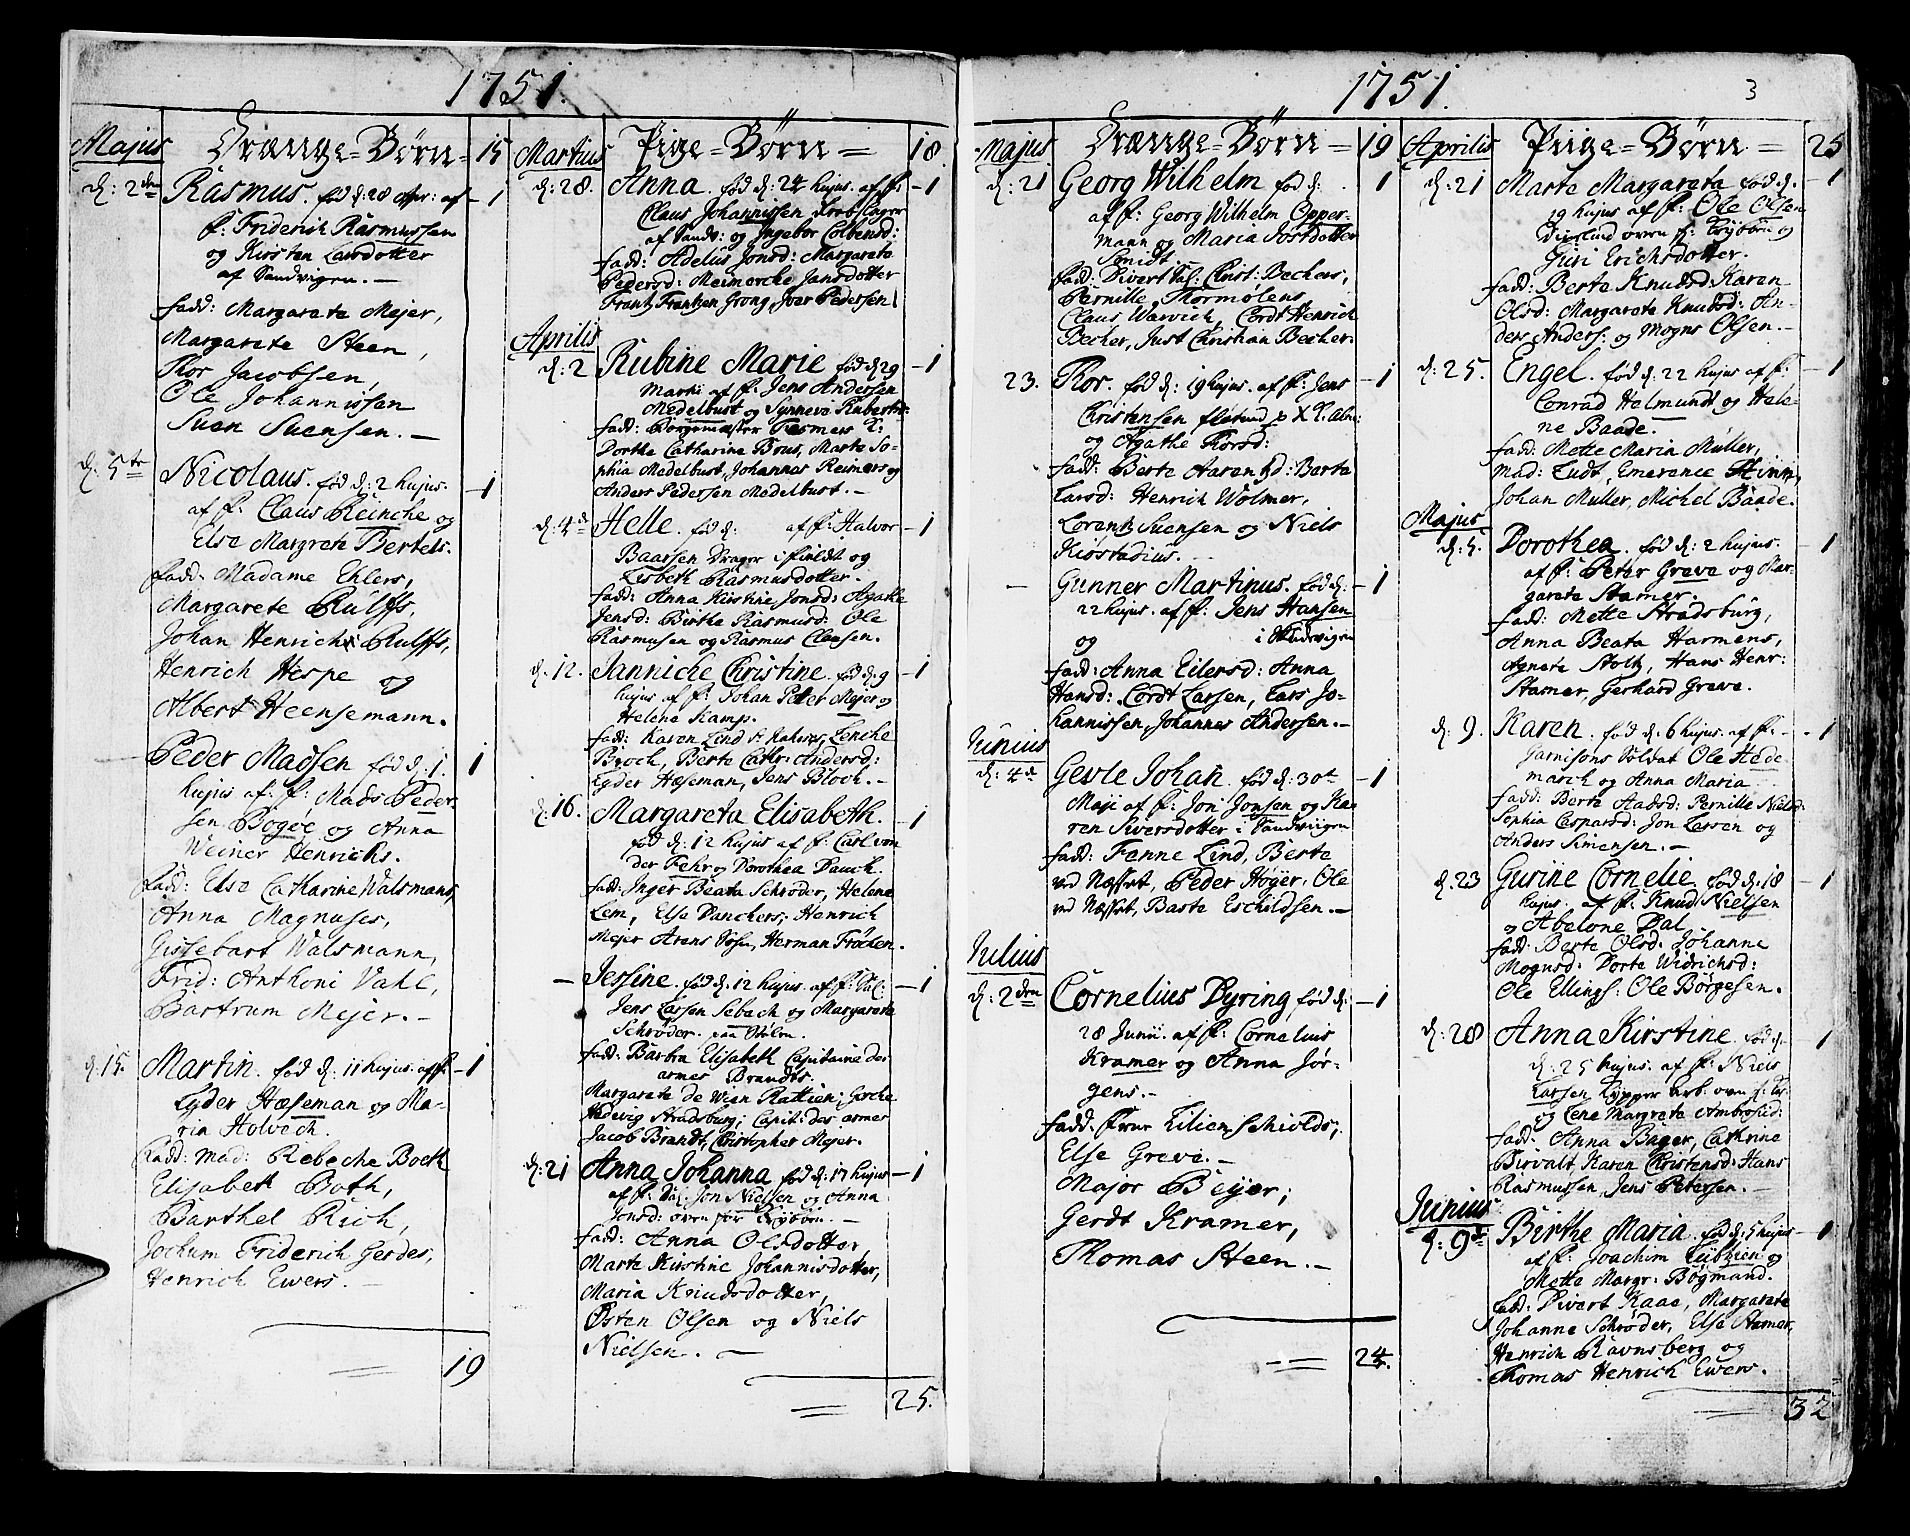 1751.
Majus Drænge=Børn 15
d: 2den Rasmus. fød d: 28 Apr: af - 1
f: Friderich Rasmussen
og Kirsten Larsdotter
af Sandvigen. -
fadd: Margareta Mejer,
Margarete Steen,
Thor Jacobsen,
Ole Johannissen
Suen Suensen. -
d: 5te Nicolaus. fød d: 2 hujus. - 1
af f: Claus Reinche og
Else Margrete Bertels.
fadd. Madame Ehlers,
Margarete Rulffs,
Johan Henrich Rulffs,
Henrich Hespe og
Albert Heensemann.
- Peder Madsen fød d: 1. 1
hujus af: f: Mads Peder-
sen Bogøe og Anna
Weiner Henrichs.
fadd: Else Catharine Walsmans,
Anna Magnuses,
Gissebart Walsmann,
Frid: Anthoni Vahl,
Bartrum Mejer. -
d. 15. Martin. fød d: 11 hujus. af f: - 1
Lyder Hæseman og Ma-
ria Holvech.
Fadd: Mad: Rebeche Both
Elisabeth Both,
Barthel Rich,
Jochum Friderich Gerdes,
Henrich Ewers. -
19
Martius Pige=Børn = 18.
d: 28. Anna. fød d: 24 hujus. af f: - 1
Claus Johannissen Rebslager
af Sandv: og Ingebor Colbensd:
fadd: Adelus Jonsd: Margarete
Pedersd: Meimerche Jansdotter
Frantz Frantzen Grong, Joer Pedersen
Aprilis
d: 2 Rubine Marie fød d 29 - 1
Martii af f: Jens Andersen
Medelbust og Synneve Rubertsd:
fadd: Borgemæster Fesmers K:
Dorthe Catharina Bous, Marte So-
phia Medelbust, Johannes Reimers og
Anders Pedersen Medelbust. -
d: 4de Helle. fød d: af f: Halvor - 1
Baarsen Drager i fieldt og
Lisbeth Rasmusdotter.
fadd: Anna Kirstine Jonsd: Agathe
Jensd: Birthe Rasmusd: Ole
Rasmusen og Rasmus Clausen.
d. 12. Janniche Christine. fød d. 9 - 1
hujus af f: Johan Peter Mejer og
Helene Kamp.
fadd: Karen Lind Lenche
Bloch, Berte Cathr: Andersd:
Lyder Hæseman, Jens Bloch. -
d: 16. Margareta Elisabeth. - 1
fød d: 12 hujus af f: Carl von
der Fehr og Dorothea Dauch.
fadd: Inger Beata Schrøder, Helene
Lem, Else Danchers, Henrich
Mejer Arens Søn, Herman Frøchen.
- Jessine. fød d: 12 hujus. af f: Sal: - 1
Jens Lassen Sebach og Margareta
Schrøder.
fadd: Barbra Elisabeth Capitaine des
armes Brandts.
Margareta de Wien Rattien; Gesche
Hedevig Stradsburg; Capit: des armes
Jacob Brandt, Cristopher Mejer.
d: 21 Anna Johanna fød d: 17 hujus - 1
af f: Sal. Jon Nielsen og Anna
Jonsd: oven for Trybøen. -
fadd: Anna Olsdotter,
Marte Kirstine Johannisdotter,
Maria Knudsdotter,
Østen Olsen og Niels
Nielsen. -
25.
1751. 3
Majus Drænge=Børn = 19
d: 21 Georg Wilhelm fød d: 1
af f: Georg Wilhelm Opper-
mann og Maria Jostdotter
Smidt.
fadd: Divert Sal: Christ: Bechers,
Pernille Thormølens
Claus Warwich, Cordt Henrich
Becher, Just Christian Becher.
23. Thor. fød d: 19 hujus. af f: Jens - 1
Christensen
og Agathe Thorsd:
fadd: Berte Aarentzd: Berta
Larsd: Henrich Wolmer,
Lorentz Suensen og Niels
Kiøstadius. -
- Gunner Martinus. fød d: - 1
22 hujus. af f: Jens Hansen
og i Sandvigen
fadd: Anna Eilersd: Anna
Hansd: Cordt Larsen, Lars Jo-
hannissen, Johannes Andersen. -
Junius
d: 4de Gevle Johan. fød d: 30te - 1
Maji af f: Jon Jonsen og Ka-
ren Siversdotter i Sandviigen
fadd: Fenne Lind, Berte
ved Næsset, Peder Høyer, Ole
ved Næsset, Baste Eschildsen. -
Julius
d: 2den Cornelius Dyring fød d: - 1
28 Junii. af f: Cornelius
Kramer og Anna Jør-
gens. -
fadd. Frue Lilienschiolds;
Else Greve. -
Major Beyer;
Gerdt Kramer,
Thomas Steen. -
24.
Aprilis Piige=Børn = 25
d: 21 Marte Margareta fød d. - 1
19 hujus af f: Ole Olsen
oven f: Trybøen og
Guri Erichsdotter.
fadd: Berte Knudsd: Karen
Olsd: Margarete Knudsd: An-
ders Anders: og Mogns Olsen. -
d: 25. Engel. fød d: 22 hujus af f: - 1
Conrad Helmundt og Hele-
ne Baade.
fadd: Mette Maria Müller,
Mad: Ludt, Emerence Hinn,
Johan Muller, Michel Baade.
Majus
d: 5. Dorothea. fød d: 2 hujus. - 1
af f: Peter Greve og Mar-
gareta Stamer.
fadd: Mette Stradsburg,
Anna Beata Harmens,
Agneta Stolt, Hans Henr:
Stamer, Gerhard Greve.
d: 9. Karen. fød d: 6 hujus. af f: - 1
Garnisons Soldat Ole Hede-
march og Anna Maria
fadd: Berte Aadsd: Pernille Nielsd:
Sophia Caspersd: Jon Larsen og
Anders Simensen. -
d. 23 Gurine Cornelie. fød d: 18 - 1
hujus. af f: Knud Nielsen
og Abelone Dal.
fadd: Berte Olsd: Johanne
Mognsd: Dorte Widrichsd:
Ole Ellings: Ole Børgesen.
d: 28 Anna Kirstine. fød - 1
d: 25 hujus. af f: Niels
Larsen Lygger arb: oven f: Tr:
og Lene Margreta Ambrosid:
fadd: Anna Bager, Cathrine
Birvalt, Karen Christensd: Hans
Rasmussen, Jens Petersen. -
Junius
d: 9de Birthe Maria. fød d: 5 hujus - 1
af f: Joachim Lubchien og
Mette Margr: Bøgmand.
fadd: Divert Kaae, Margarete
Johanne Schrøder, Else Stamer,
Henrich Ravnsberg og
Thomas Henrich Ewers.
32